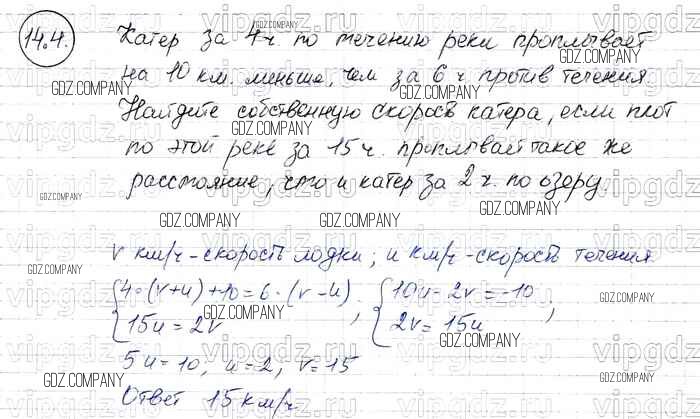 14.4. Катер за 4ч. по течению реки проплывает
на 10 км. меньше, чем за 6 ч против течения.
Найдите собственную скорость катера, если плот
по этой реке за 15 ч. проплывает такое же
расстояние, что и катер за 2 ч. по озеру.
v км/ч - скорость лодки; u км/ч - скорость течения
{4·(v+u)+10=6·(v-u) ; {10u-2v=-10 ;
15u=2v 2v=15u
5u=10, u=2, v=15
Ответ 15 км/ч
GDZ.COMPANY
vipgdz.ru